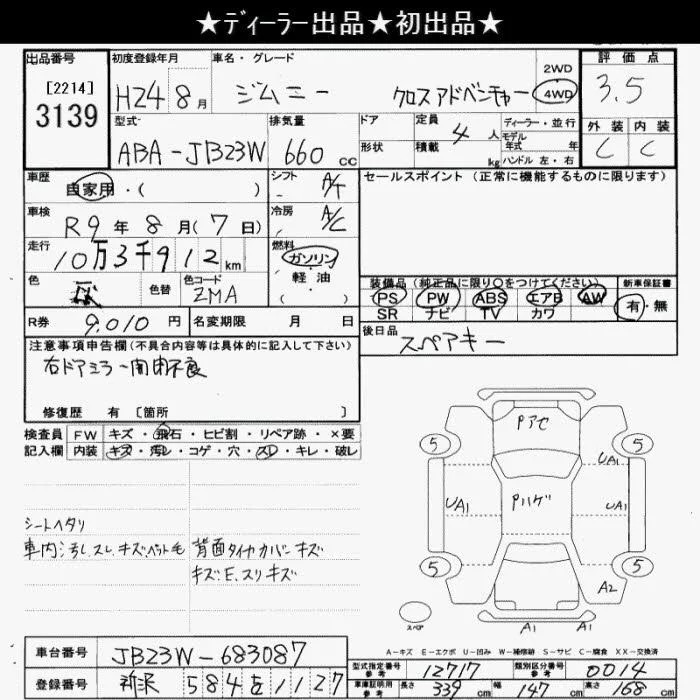 ★ディーラー出品★初出品★
出品番号 初度登録年月 車名・グレード 2WD 評価点
[2214] 3139 H24年8月 ジムニー クロスアドベンチャー 4WD 3.5
型式 排気量 ドア 定員 4人 ディーラー・並行 外装 内装
ABA-JB23W 660cc 形状 積載 kg モデル年式 年 C C
ハンドル 左・右
車歴 自家用・( ) シフト A/T セールスポイント(正常に機能するものに限ります)
車検 R9年8月(7日) 冷房 A/C
走行 10万3千912km 燃料 ガソリン
軽・油
( )
色 灰 色替 色コード ZMA 装備品(純正品に限り〇をつけてください) 新車保証書
PS PW ABS エアB AW 有・無
SR ナビ TV カワ
R券 9,010円 名変期限 月 日 後日品
スペアキー
注意事項申告欄(不具合内容等は具体的に記入して下さい)
右ドアミラー開閉不良
修復歴 有〔箇所 〕
検査員 FW キズ・飛石・ヒビ割・リペア跡・×要
記入欄 内装 キズ・汚レ・コゲ・穴・スレ・キレ・破レ
シートヘタリ
車内:汚レ、スレ、キズペット毛
背面タイヤカバーキズ
キズ:E、スリキズ
Pアセ
5 5
UA1
UA1 Pハゲ UA1
5 5
A2
スペア A1 A1
A-キズ E-エクボ U-凹み W-補修跡 S-サビ C-腐食 XX-交換済
車台番号 JB23W-683087
型式指定番号 参考 12717 類別区分番号 参考 0014
登録番号 所沢 584 を 1127
車庫証明用 参考 長さ 339cm 幅 147cm 高さ 168cm